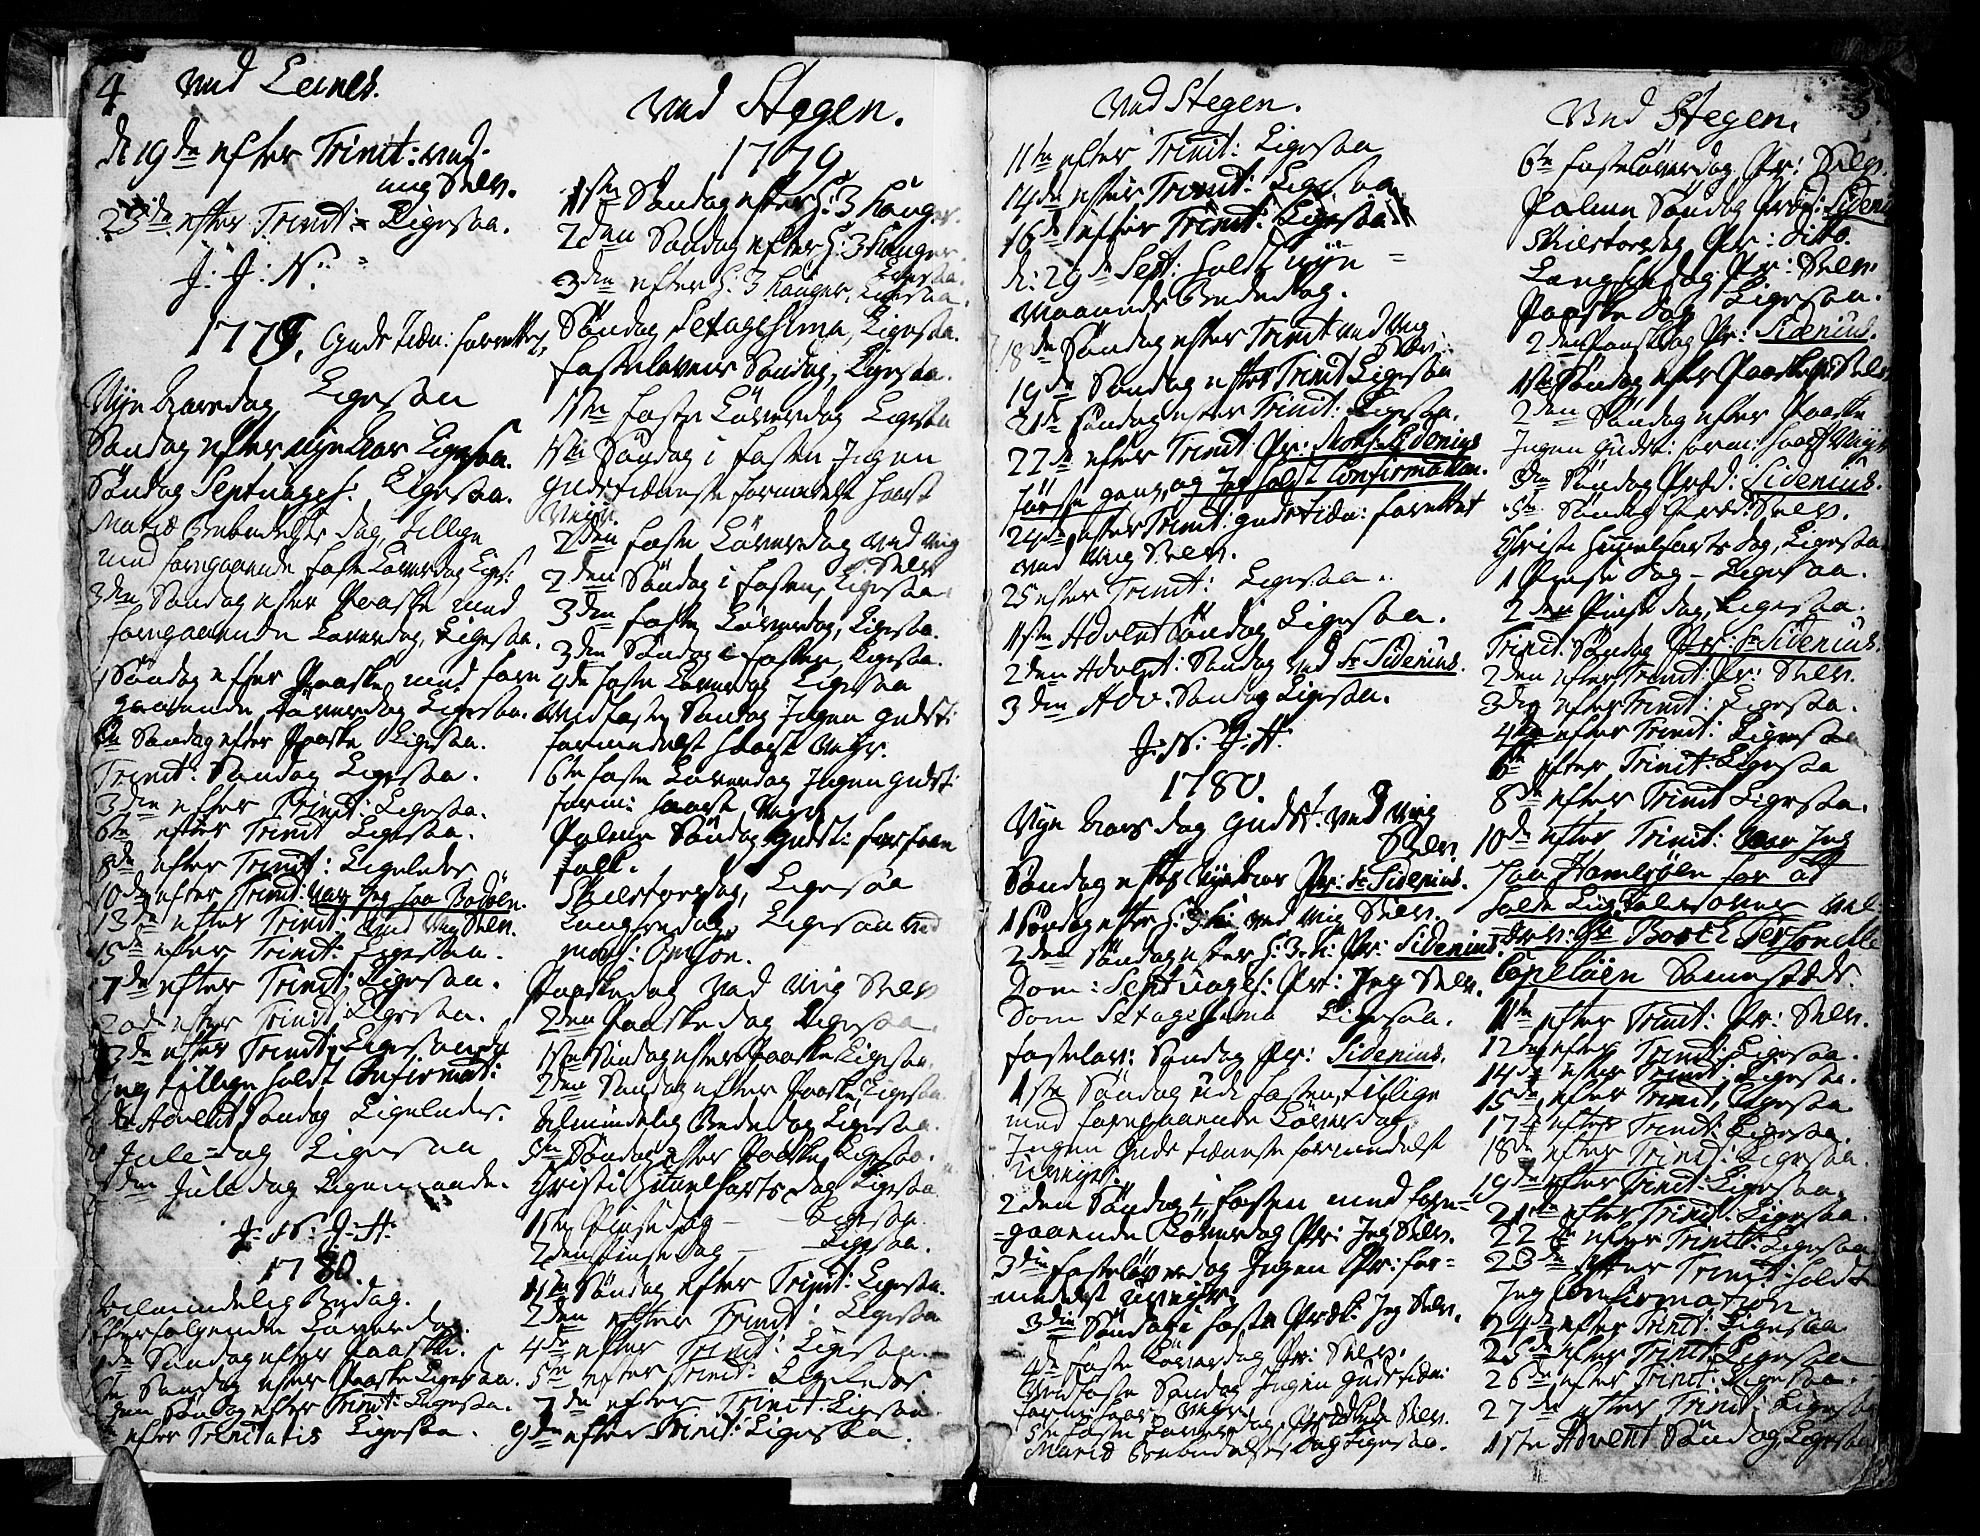 4 ved Leines.
d: 19de efter Trinit: ved
mig Selv.
23de efter Trinit = Ligesaa.
J: J: N:
1779, Guds tiæn: forrettes,
Nye Aarsdag Ligesaa
Søndag efter nye Aar Ligesaa.
Søndag Septuages: Ligesaa.
Mariæ Bebudelses dag, tillige
med foregaaende faste Løverdag Liges:
3den Søndag efter Paaske med
foregaaende Løverdag, Ligesaa.
4 Søndag efter Paaske med fore
gaaende Løverdag Ligesaa.
Søndag efter Paaske Ligesaa.
Trinit: Søndag Ligesaa.
3die efter Trinit: Ligesaa.
6te efter Trinit Ligesaa.
8de efter Trinit: Ligeledes
10de efter Trinit: var Jeg paa Bodöen.
13de efter Trinit: ved mig Selv.
15de efter Trinit: Ligesaa.
17de efter Trinit: Ligesaa.
20de efter Trinit Ligesaa.
22de efter Trinit: Ligesaa da
Jeg tillige holdt Confirmat:
Advent Søndag Ligeledes.
Jule-dag Ligesaa
den Juledag Ligemaade.
J: N: J: H:
1780.
Almindelig Bedag.
Efterfølgende Løverdag.
Søndag efter Paaske.
Søndag efter Paaske Ligesaa.
Søndag efter Trinit: Ligesaa.
efter Trinitatis Ligesaa.
ved Stegen.
1779
1ste Søndag efter H: 3 Konger.
2den Søndag efter H: 3 Konger
Ligesaa.
3den efter H: 3 Konger, Ligesaa.
Søndag Sexagesima, Ligesaa.
Fastelavens Søndag, Ligesaa.
1ste faste Løverdag Ligesaa
1ste Søndag i fasten Jngen
gudstiæneste formedelst haart
Veir.
2den faste Løverdag ved mig
Selv
2den Søndag i fasten, Ligesaa.
3den faste Løverdag, Ligesaa.
3den Søndag i fasten, Ligesaa.
4de faste Løverdag Ligesaa
Midfaste Søndag Jngen gudst:
formedelst haart Vejr.
6te faste Løverdag Jngen gudst:
form: haart Vejr
Palme Søndag gudst: for faae
folk.
Skiertorsdag, Ligesaa
Langfredag, Ligesaa ved
Paaskedag ved mig Selv
2den Paaskedag Ligesaa.
1ste Søndag efter Paaske Ligesaa.
2den Søndag efter Paaske, Ligesaa.
Almindelig Bededag Ligesaa.
5te Søndag efter Paaske, Ligesaa.
Christi Himmelfarts dag Ligesaa
1ste Pinsedag — Ligesaa.
2den Pinsedag — Ligesaa.
1ste Søndag efter Trinit: Ligesaa.
2den efter Trinit: Ligesaa
4de efter Trinit: Ligesaa.
5te efter Trinit: Ligeledes
7de efter Trinit: Ligesaa.
9de efter Trinit: Ligesaa.
Ved Stegen.
11te efter Trinit: Ligesaa
14de efter Trinit: Ligesaa
16de efter Trinit: Ligesaa.
d: 29de Sept: holdt nÿe =
Maaneds Bededag.
18de Søndag efter Trinit ved mig
Selv.
19de Søndag efter Trinit Ligesaa
21de Søndag efter Trinit: Ligesaa.
22de efter Trinit: Pr: Mons: Sidenius
første gang, og Jeg holdt Confirmation.
24de efter Trinit: gudstiæn: forrettet
ved mig Selv.
25 efter Trinit: Ligesaa.
1ste Advent Søndag Ligesaa.
2den Advent: Søndag ved Sr Sidenius.
3die Adv: Søndag Ligesaa.
J: N: J: H:
1780.
Nye Aars dag Gudst: ved mig
Selv.
Søndag efter Nye Aar Pr: Sr Sidenius.
1 Søndag efter H: 3 K: ved mig Selv.
2den Søndag efter H: 3. K: Pr: Sidenius.
Dom: Septuages: Pr: Jeg Selv.
Dom Sexagesima Ligesaa.
Fastelav: Søndag Pr: Sidenius.
1ste Søndag udi fasten, tillige
med foregaaende Løverdag
Jngen Guds tiæneste formedelst
Uvejr.
2den Søndag i fasten med fore-
=gaaende Løverdag Pr: Jeg Selv.
3die fasteløverdag Jngen Pr: for=
=medelst uvejr,
3die Søndag i faste Prædk: Jeg Selv.
4de faste Løverdag Pr: Selv.
Midfaste Søndag Jngen gudstiæn:
form: haart Vejr.
5te faste Løverdag, Prædkede Selv.
Mariæ Bebudelses Dag Ligesaa.
Ved Stegen.
6te fasteløverdag Pr: Selv.
Palme Søndag Præd: Sideni
Skiertorsdag Pr: dito.
Langfredag Pr: Selv.
Paaske Dag Ligesaa.
2den Paaskdag Pr: Sidenius.
1ste Søndag efter Paaske Pr: Selv
2den Søndag efter Paaske
Jngen gudst: form: haart Vejr
3die Søndag Præd: Sidenius.
5te Søndag Præd: Selv.
Christi Himmelfarts Dag, Ligesaa
1 Pinse Dag — Ligesaa.
2den Pinse dag, Ligesaa.
Trinit: Søndag Pr: Sr Sidenius.
2den efter Trinit: Pr: Selv.
3die efter Trinit: Ligesaa.
4de efter Trinit: Ligesaa
6te efter Trinit: Ligesaa
8de efter Trinit Ligesaa.
10de efter Trinit: var Jeg
paa Hamerøen for at
holde Ligtale over vel:
Hr Borch Personelle
Capellan Sammesteds.
11te efter Trinit: Pr: Selv.
12te efter Trinit: Ligesaa.
14de efter Trinit: Ligesaa.
15de efter Trinit, Ligesaa
17de efter Trinit: Ligesaa.
18de efter Trinit: Ligesaa.
19de efter Trinit: Ligesaa,
21de efter Trinit: Ligesaa.
22de efter Trinit: Ligesaa
23de efter Trinit: holdt
Jeg Confirmation.
24de efter Trinit: Ligesaa
25de efter Trinit: Ligesaa
26de efter Trinit: Ligesaa.
27de efter Trinit: Ligesaa
1ste Advent Søndag, Ligesaa